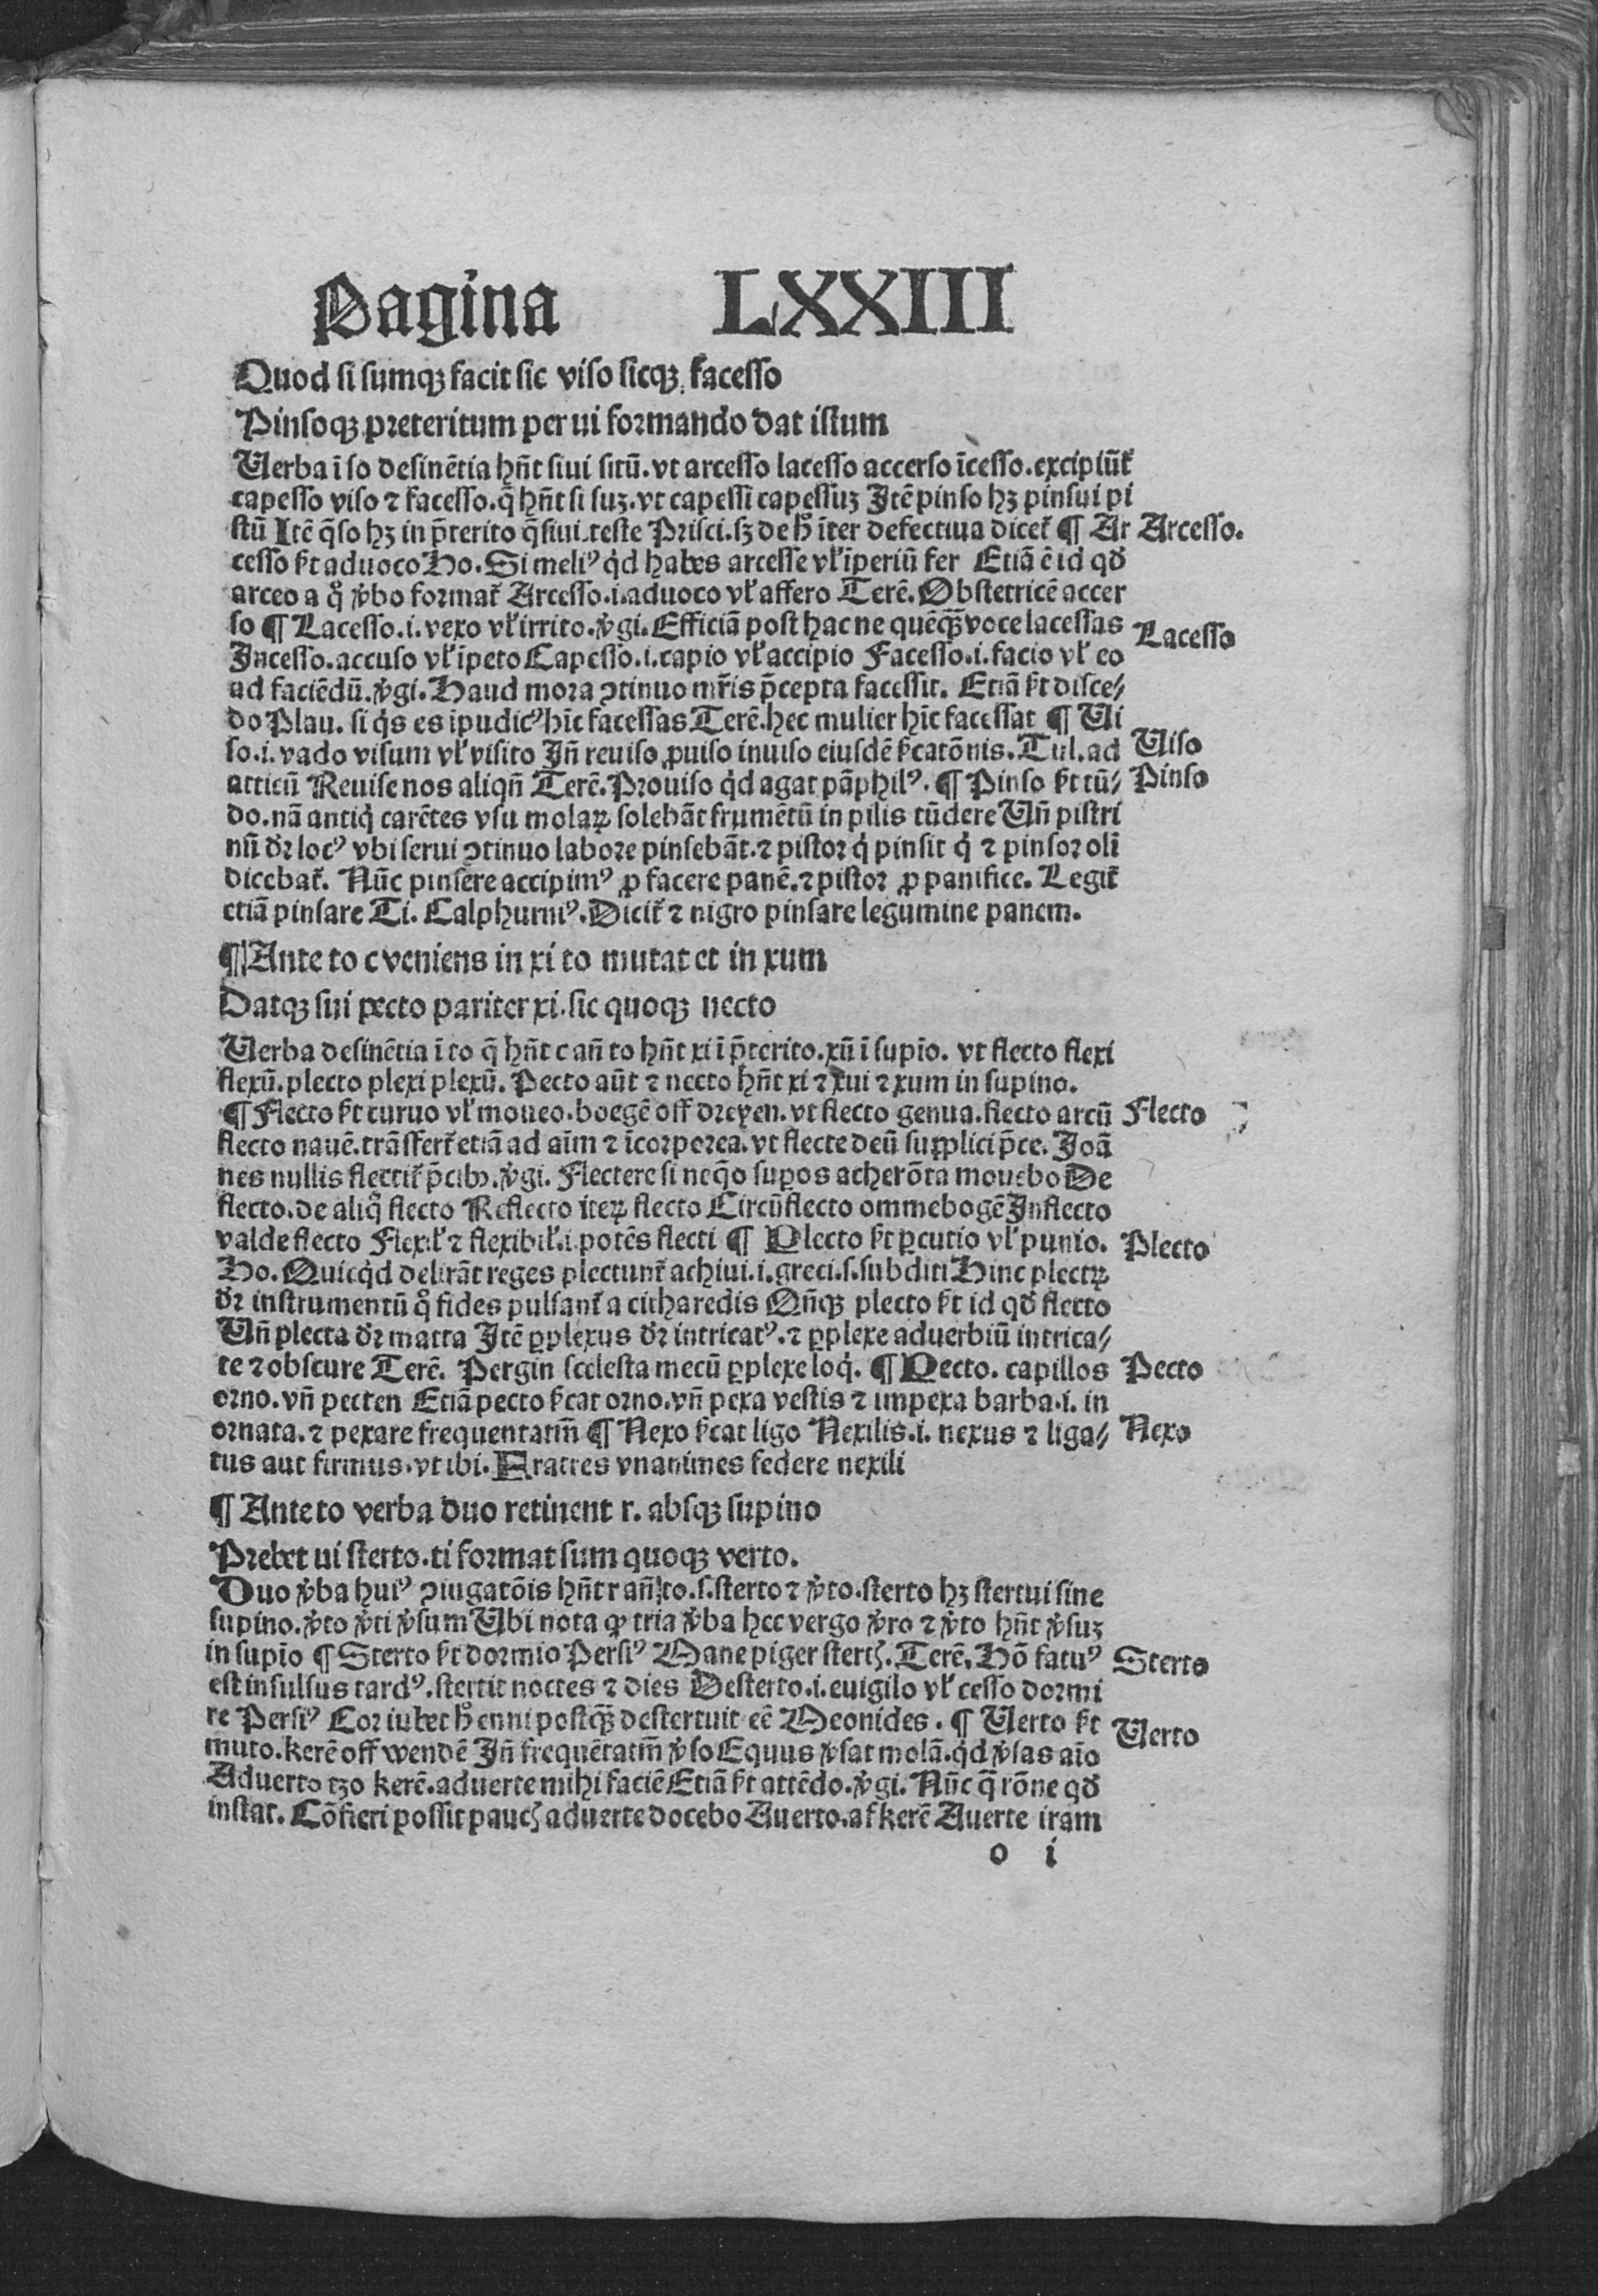 Pagina LXXIII
Quod si sumqꝫ facit sic viso sicqꝫ facesso
Pinsoqꝫ preteritum per ui formando dat istum
Uerba ī so desinētia hn̄t siui sitū. vt arcesso lacesso accerso īcesso. excipiūt᷑
capesso viso ⁊ facesso. q̄ hn̄t si suꝫ. vt capessi capessuꝫ Itē pinso hꝫ pinsui pi
stū Itē q̄so hꝫ in p̄terito q̄siui. teste Prisci. sꝫ de hͦ īter defectiua dicet᷑ ¶ Ar
Arcesso.
cesso st aduoco Ho. Si meliꝰ qͥd habes arcesse vl̓ īperiū fer Etiā ē id qđ
arceo a qͦ v̓bo format᷑ Arcesso .i. aduoco vl̓ affero Terē. Obstetricē accer
so ¶ Lacesso .i. vexo vl̓ irrito. v̓gi. Efficiā post hac ne quēqꝫ̄ voce lacessas
Lacesso
Incesso. accuso vl̓ īpeto Capesso .i. capio vl̓ accipio Facesso .i. facio vl̓ eo
ad faciēdū. v̓gi. Haud mora ꝯtinuo mr̄is p̄cepta facessit. Etiā st disce⸗
do Plau. si qͥs es īpudicꝰ hīc facessas Terē. hec mulier hīc facessat ¶ Ui
so .i. vado visum vl̓ visito In̄ reuiso ꝓuiso inuiso eiusdē sc̄atōnis. Tul. ad
Uiso
atticū Reuise nos aliqn̄ Terē. Prouiso qͥd agat pāphilꝰ. ¶ Pinso st tū⸗
Pinso
do. nā antiqͥ carētes vsu molaꝝ solebāt frumētū in pilis tūdere Un̄ pistri
nū dr̄ locꝰ vbi serui ꝯtinuo labore pinsebāt. ⁊ pistor qͥ pinsit qͥ ⁊ pinsor olī
dicebat᷑. Nūc pinsere accipimꝰ ꝓ facere panē. ⁊ pistor ꝓ panifice. Legit᷑
etiā pinsare Ti. Calphurniꝰ. Dicit᷑ ⁊ nigro pinsare legumine panem.
¶ Ante to c veniens in xi to mutat et in xum
Datqꝫ sui pecto pariter xi. sic quoqꝫ necto
Uerba desinētia ī to q̄ hn̄t c an̄ to hn̄t xi ī p̄terito. xū ī supīo. vt flecto flexi
flexū. plecto plexi plexū. Pecto aūt ⁊ necto hn̄t xi ⁊ xui ⁊ xum in supino.
¶ Flecto st curuo vl̓ moueo. boegē off dreyen. vt flecto genua. flecto arcū
Flecto
flecto nauē. trāsfert᷑ etiā ad aīm ⁊ īcorporea. vt flecte deū supplici p̄ce. Joā
nes nullis flectit᷑ p̄cibꝫ. v̓gi. Flectere si neq̄o supos acherōta mouebo De
flecto. de aliqͦ flecto Reflecto iteꝝ flecto Circūflecto ommebogē Inflecto
valde flecto Flexil̓ ⁊ flexibil̓ .i. potēs flecti ¶ Plecto st ꝑcutio vl̓ punio.
Plecto
Ho. Quicqͥd delirāt reges plectunt᷑ achiui .i. greci .s. subditi Hinc plectꝝ
dr̄ instrumentū qͦ fides pulsant᷑ a citharedis Qn̄qꝫ plecto st id qđ flecto
Un̄ plecta dr̄ matta Itē ꝑplexus dr̄ intricatꝰ. ⁊ ꝑplexe aduerbiū intrica⸗
te ⁊ obscure Terē. Pergin scelesta mecū ꝑplexe loqͥ. ¶ Pecto. capillos
Pecto
orno. vn̄ pecten Etiā pecto sc̄at orno. vn̄ pexa vestis ⁊ impexa barba .i. in
ornata. ⁊ pexare frequentatm̄ ¶ Nexo sc̄at ligo Nexilis .i. nexus ⁊ liga⸗
Nexo
tus aut firmus. vt ibi. Fratres vnanimes federe nexili
¶ Ante to verba duo retinent r. absqꝫ supino
Prebet ui sterto. ti format sum quoqꝫ verto.
Duo v̓ba huiꝰ ꝯiugatōis hn̄t r an̄ to .s. sterto ⁊ v̓to. sterto hꝫ stertui sine
supino. v̓to v̓ti v̓sum Ubi nota ꝙ tria v̓ba hec vergo v̓ro ⁊ v̓to hn̄t v̓suꝫ
in supīo ¶ Sterto st dormio Persiꝰ Mane piger stertꝭ. Terē. Hō fatuꝰ
Sterto
est insulsus tardꝰ. stertit noctes ⁊ dies Desterto .i. euigilo vl̓ cesso dormi
re Persiꝰ Cor iubet hͦ enni postqꝫ̄ destertuit eē Meonides. ¶ Uerto st
Uerto
muto. kerē off wendē In̄ frequētatm̄ v̓so Equus v̓sat molā. qͥd v̓sas aīo
Aduerto tzo kerē. aduerte mihi faciē Etiā st attēdo. v̓gi. Nūc q̄ rōne qđ
instat. Cōfieri possit paucꝭ aduerte docebo Auerto. af kerē Auerte iram
o i